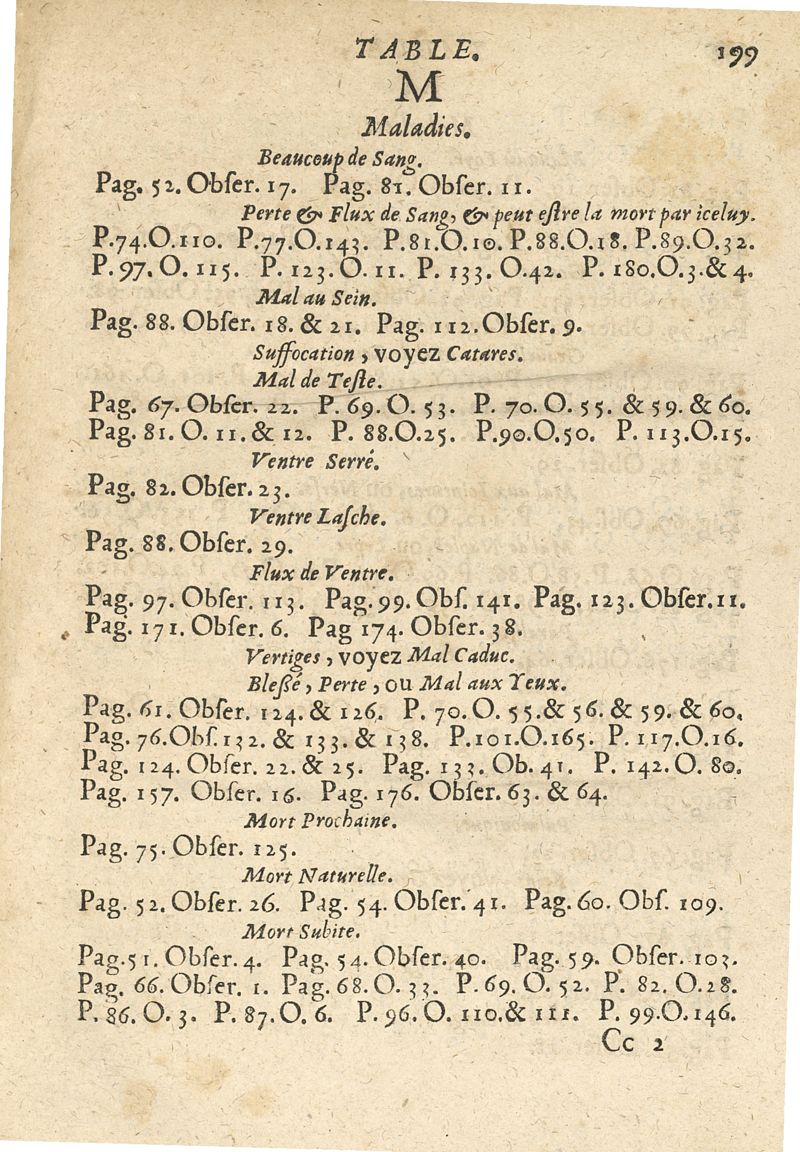 TABLE. 199
M
Maladies.
Beaucoup de Sang.
Pag. 52. Obſer. 17. Pag. 81. Obſer. 11.
Perte & Flux de Sang, & peut eſtre la mort par iceluy.
P.74.O.110. P.77.O.143. P.81.O.10. P.88.O.18. P.89.O.32.
P. 97. O. 115. P. 123. O. 11. P. 133. O.42. P. 180.O.3.& 4.
Mal au Sein.
Pag. 88. Obſer. 18. & 21. Pag. 112. Obſer. 9.
Suffocation, voyez Catares.
Mal de Teſte.
Pag. 67. Obſer. 22. P. 69. O. 53. P. 70. O. 55. & 59. & 60.
Pag. 81. O. 11. & 12. P. 88.O.25. P.90.O.50. P. 113.O.15.
Ventre Serré.
Pag. 82. Obſer. 23.
Ventre Laſche.
Pag. 88. Obſer. 29.
Flux de Ventre.
Pag. 97. Obſer. 113. Pag. 99. Obſ. 141. Pag. 123. Obſer. 11.
Pag. 171. Obſer. 6. Pag 174. Obſer. 38.
Vertiges, voyez Mal Caduc.
Bleßé, Perte, ou Mal aux Yeux.
Pag. 61. Obſer. 124. & 126. P. 70. O. 55.& 56. & 59. & 60.
Pag. 76.Obſ.132. & 133. & 138. P.101.O.165. P. 117.O.16.
Pag. 124. Obſer. 22. & 25. Pag. 133. Ob. 41. P. 142. O. 80.
Pag. 157. Obſer. 16. Pag. 176. Obſer. 63. & 64.
Mort Prochaine.
Pag. 75. Obſer. 125.
Mort Naturelle.
Pag. 52. Obſer. 26. Pag. 54. Obſer. 41. Pag. 60. Obſ. 109.
Mort Subite.
Pag.51. Obſer. 4. Pag. 54. Obſer. 40. Pag. 59. Obſer. 103.
Pag. 66. Obſer. 1. Pag. 68. O. 33. P. 69. O. 52. P. 82. O.28.
P. 86. O. 3. P. 87. O. 6. P. 96. O. 110.& 111. P. 99.O.146.
Cc 2